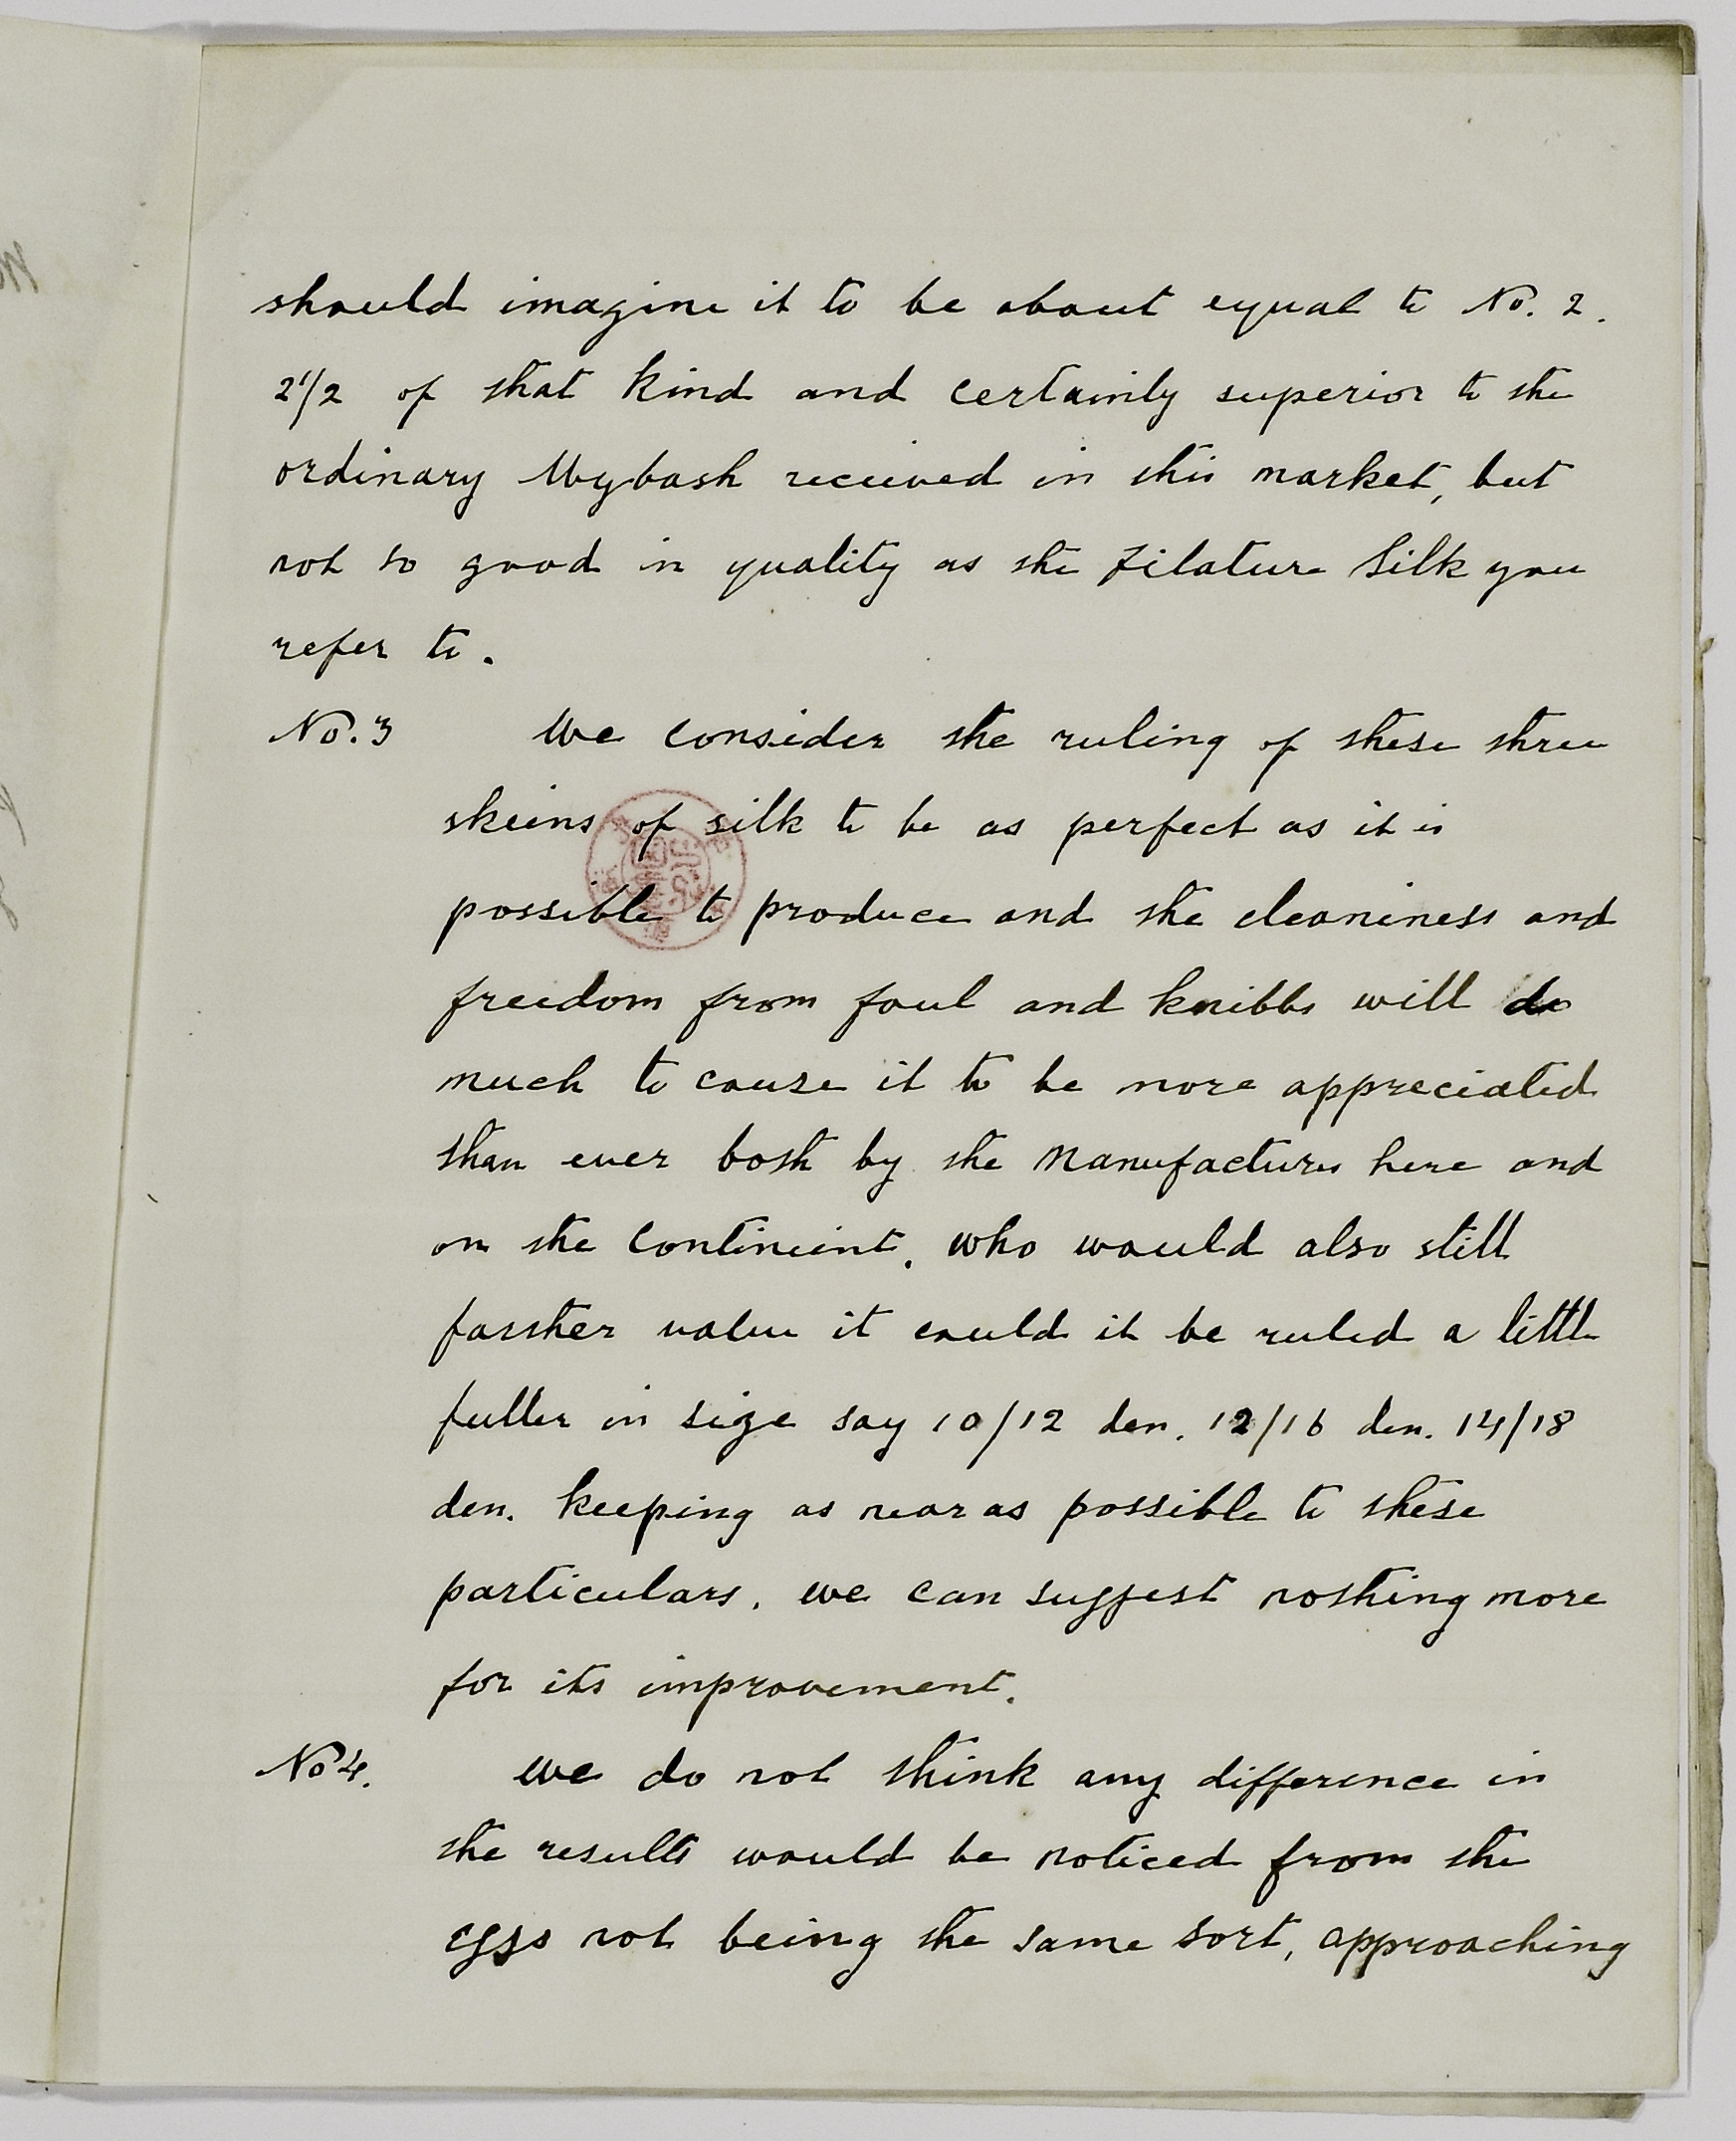 should imagine it to be about equal to No. 2.
2 1/2 of that kind and certainly superior to the
ordinary Mybash received in this market, but
not so good in quality as the Filature Silk you
refer to.
No. 3 We consider the ruling of these three
skeins of silk to be as perfect as it is
possible to produce and the cleaniness and
freedom from foul and knibbs will do
much to cause it to be more appreciated
than ever both by the Manufactures here and
on the Contineint, who would also still
farsther value it could it be ruled a little
fuller in size say 10/12 den. 12/16 den. 14/18
den. keeping as near as possible to these
particulars, we can suggest nothing more
for its improvement.
No 4. We do not think any difference in
the results would be noticed from the
eggs not being the same sort, approaching